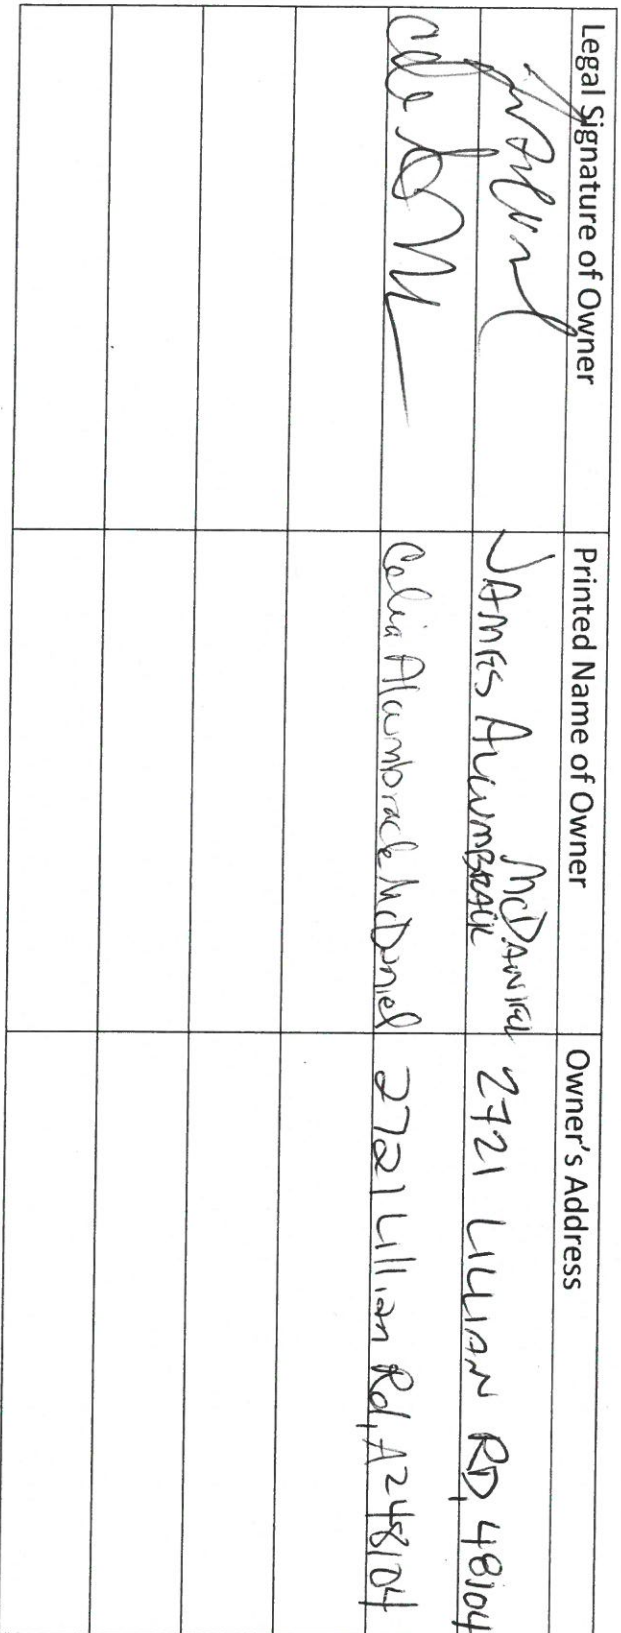 Legal Signature of Owner Printed Name of Owner Owner's Address
JAMES ALUMBRAUGH McDANIEL 2721 LILLIAN RD, 48104
Celia Alumbrack McDaniel 2721 Lillian Rd, A2 48104